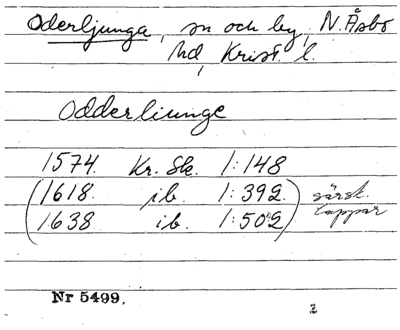 Oderljunga, sn och by, N. Åsbo
hd, Krist. l.
Odderliunge
1574. Kr. Sk. 1:148
(1618. ib. 1:392.) särsk.
1638 ib. 1:502 lappar
Nr 5499.
2